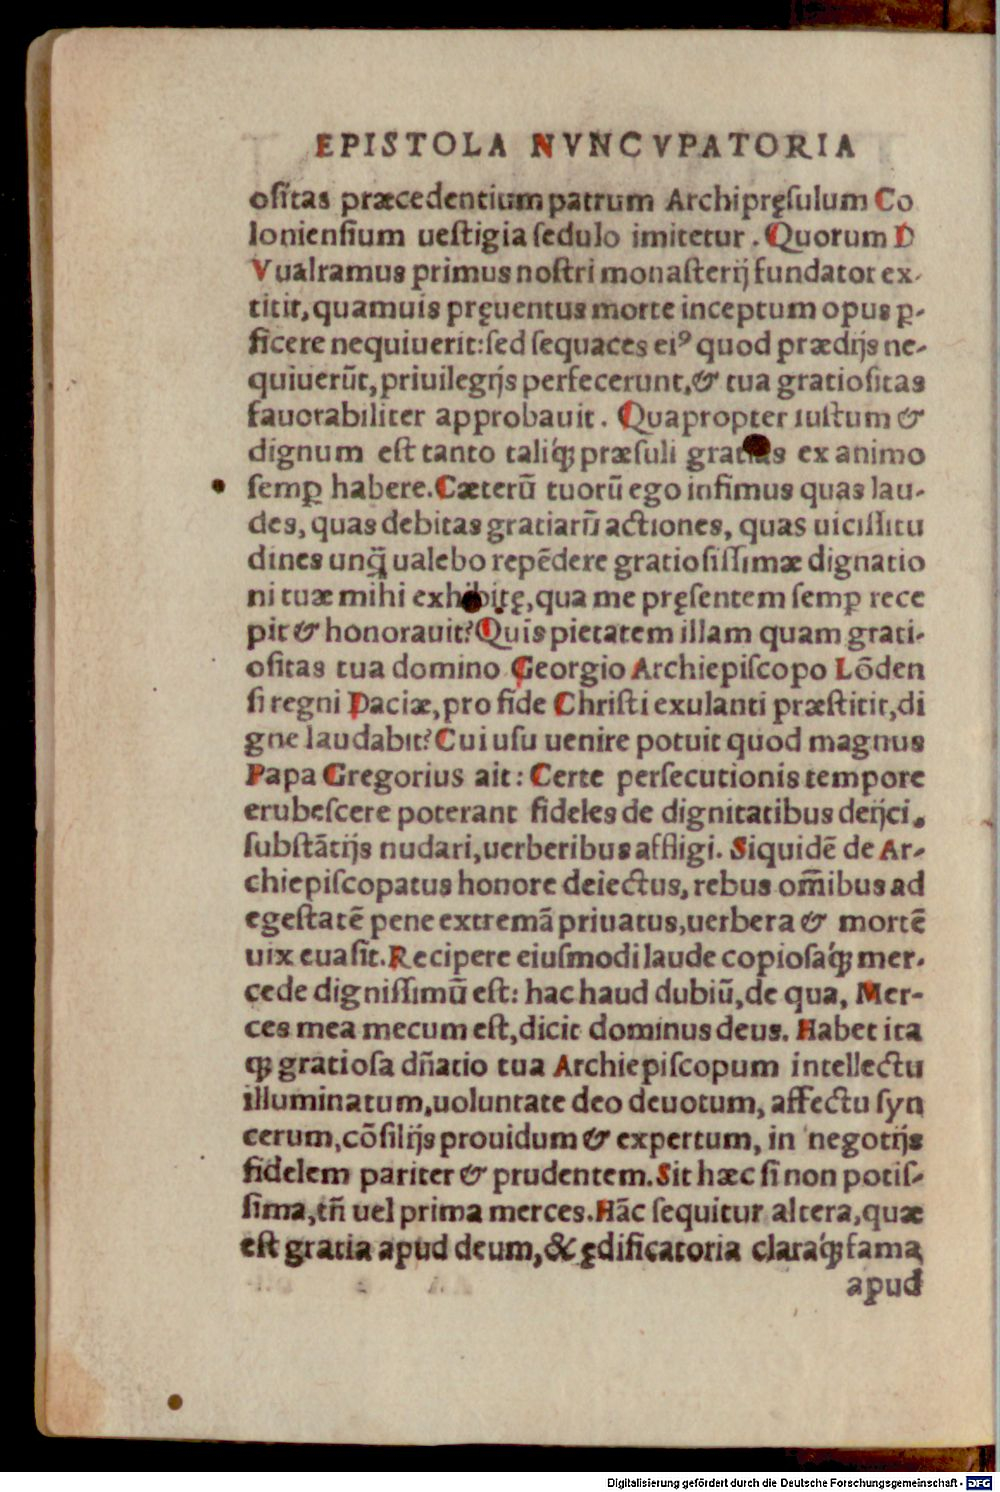 EPISTOLA NVNCVPATORIA
oſitas præcedentium patrum Archipręſulum Co
lonienſium ueſtigia ſedulo imitetur. Quorum D
Vualramus primus noſtri monaſterij fundator ex-
titit, quamuis pręuentus morte inceptum opus ꝑ-
ficere nequiuerit: ſed ſequaces eiꝰ quod prædijs ne-
quiuerūt, priuilegijs perfecerunt, & tua gratioſitas
fauorabiliter approbauit. Quapropter iuſtum &
dignum eſt tanto taliq́ꝫ præſuli gratias ex animo
ſemꝑ habere. Cæterū tuorū ego infimus quas lau-
des, quas debitas gratiarū actiones, quas uiciſſitu
dines unq̃ ualebo repēdere gratioſiſſimæ dignatio
ni tuæ mihi exhibitę, qua me pręſentem ſemꝑ rece
pit & honorauit? Quis pietatem illam quam grati-
oſitas tua domino Georgio Archiepiſcopo Lōden
ſi regni Daciæ, pro fide Chriſti exulanti præſtitit, di
gne laudabit? Cui uſu uenire potuit quod magnus
Papa Gregorius ait: Certe perſecutionis tempore
erubeſcere poterant fideles de dignitatibus deijci,
ſubſtātijs nudari, uerberibus affligi. Siquidē de Ar-
chiepiſcopatus honore deiectus, rebus om̄ibus ad
egeſtatē pene extremā priuatus, uerbera & mortē
uix euaſit. Recipere eiuſmodi laude copioſaq́ꝫ mer-
cede digniſſimū eſt: hac haud dubiū, de qua, Mer-
ces mea mecum eſt, dicit dominus deus. Habet ita
qꝫ gratioſa dn̄atio tua Archiepiſcopum intellectu
illuminatum, uoluntate deo deuotum, affectu ſyn
cerum, cōſilijs prouidum & expertum, in negotijs
fidelem pariter & prudentem. Sit hæc ſi non potiſ-
ſima, tn̄ uel prima merces. Hāc ſequitur altera, quæ
eſt gratia apud deum, & ędificatoria claraq́ꝫ fama
apud
Digitalisierung gefördert durch die Deutsche Forschungsgemeinschaft - DFG